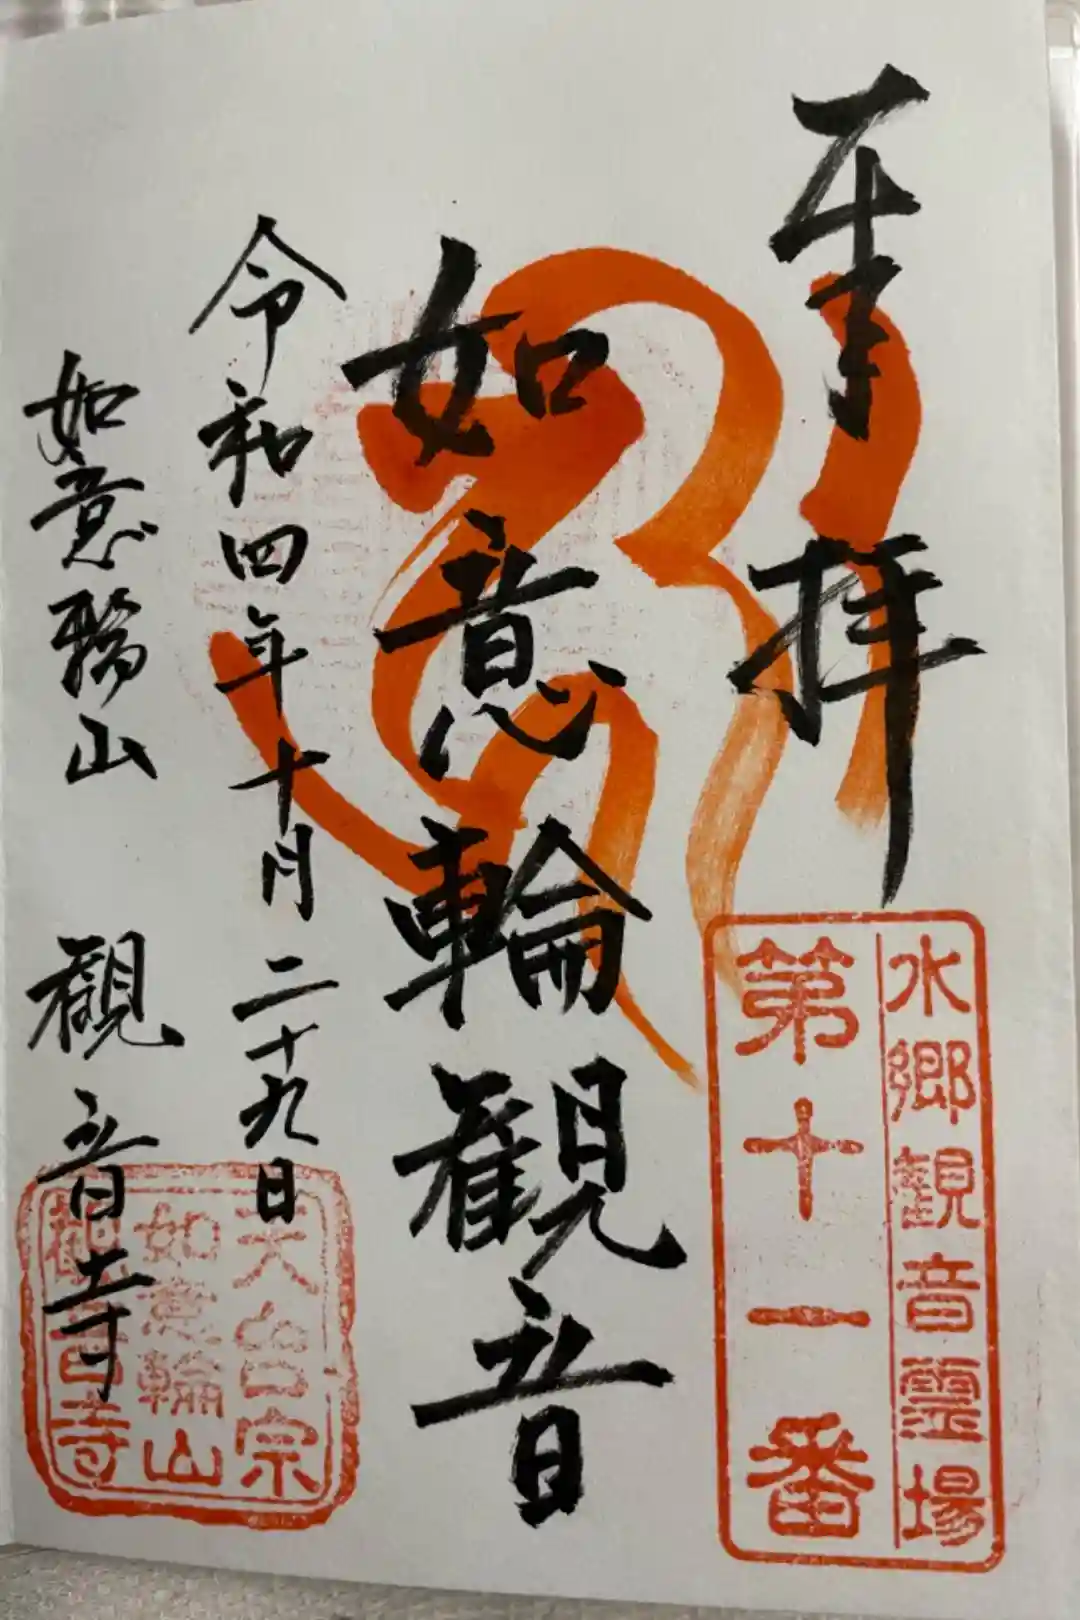 奉拝
水郷観音霊場
第十一番
如意輪観音
令和四年十月二十九日
如意輪山 観音寺
天台宗
如意輪山
観音寺